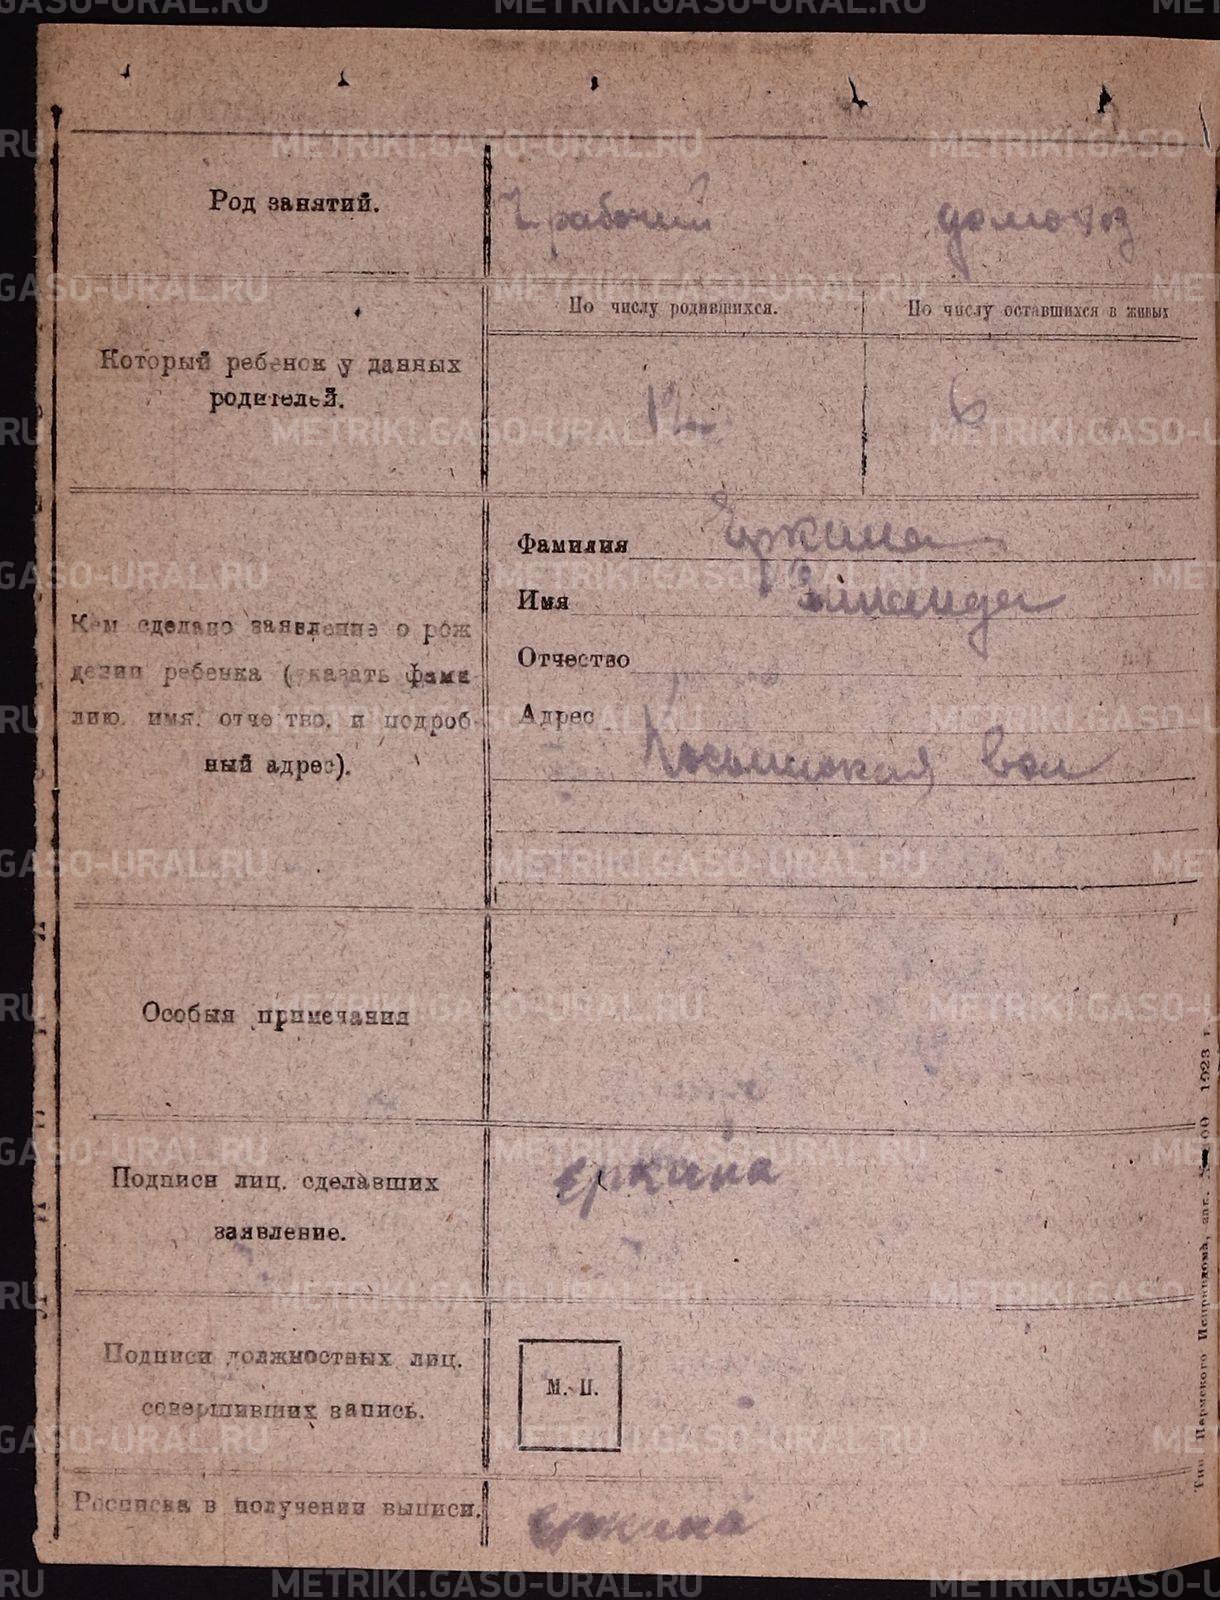 Род занятий.
Ч. рабочий
домохоз
По числу родившихся.
По числу оставшихся в живых
Который ребенок у данных
родителей.
12
6
Кем сделано заявление о рож
дении ребенка (указать фами
лию, имя, отчество, и подроб-
ный адрес).
Фамилия Еркина
Имя Зинаида
Отчество
Адрес
Косьинская вол
Особыя примечания
Подписи лиц, сделавших
заявление.
Еркина
Подписи должностных лиц,
совершивших запись.
М. П.
Росписка в получении выписи.
Еркина
Тип. Пермского Исправдома, заг. 1923 г.
METRIKI.GASO-URAL.RU